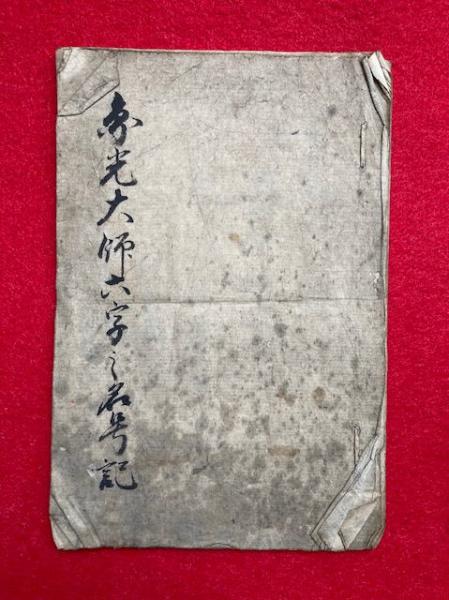 圓光大師六字之名号記